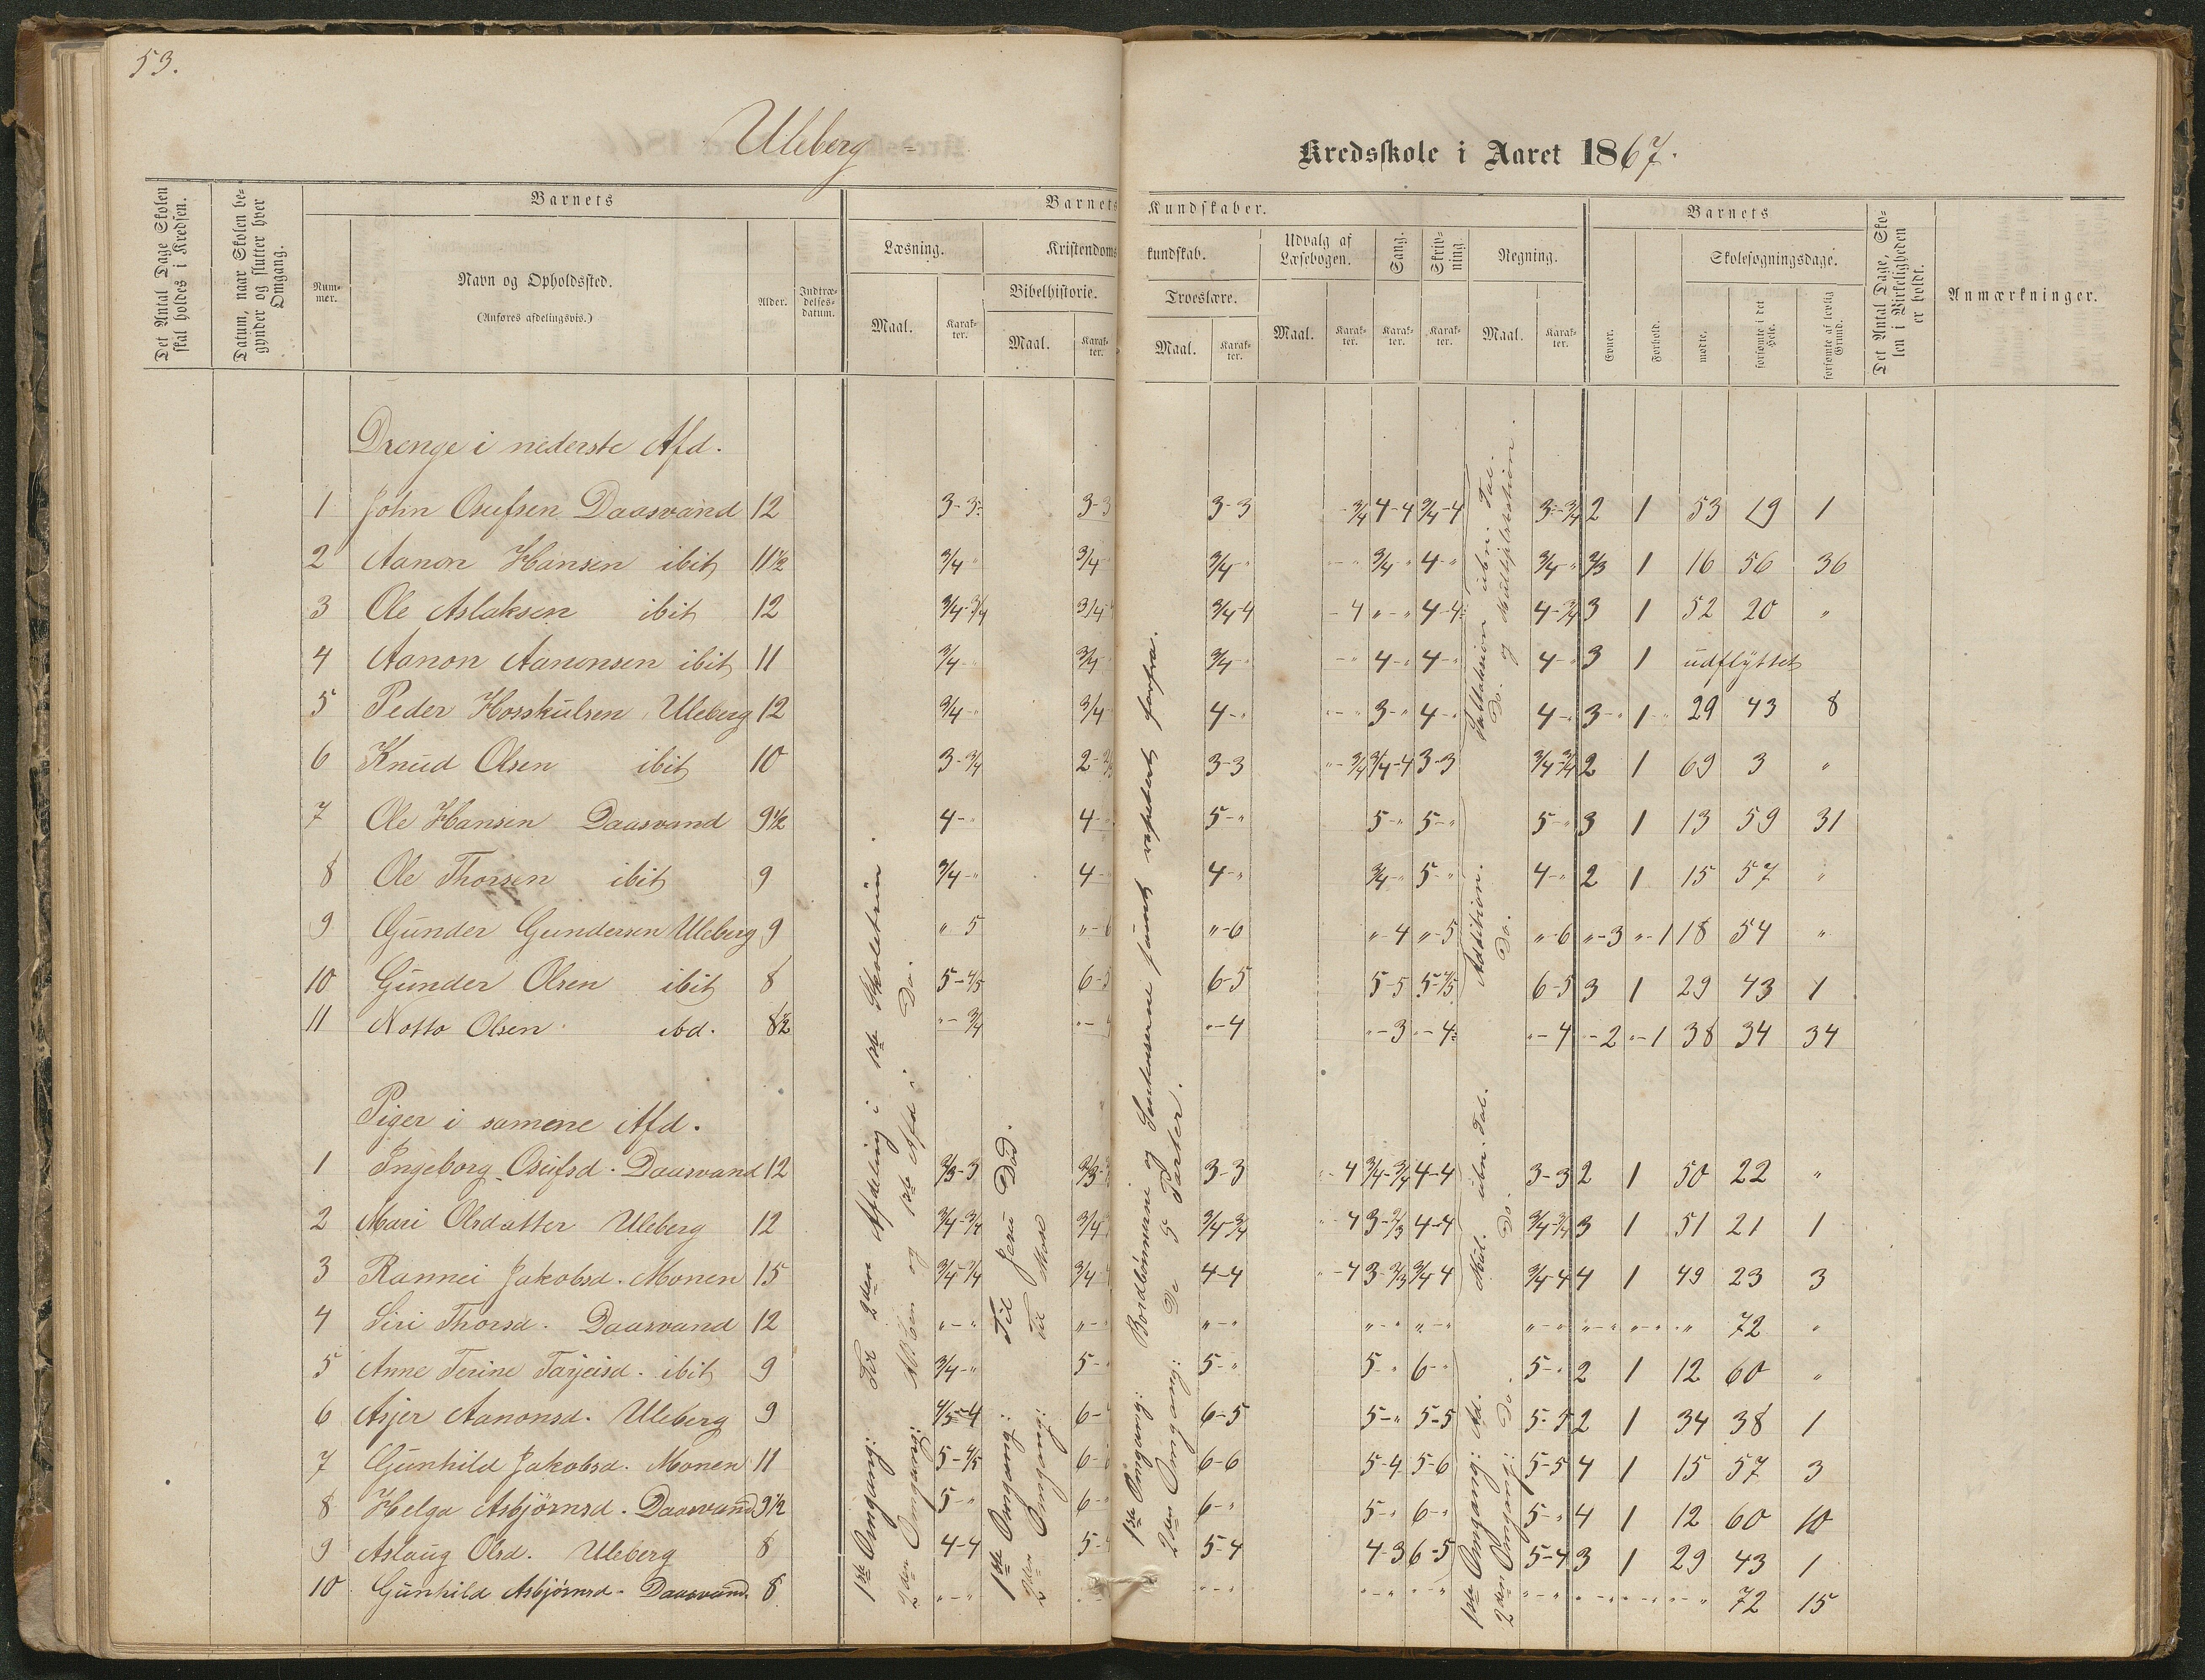 53.
Uleberg
Kredsskole i Aaret 1867.
Det Antal Dage Skolen skal holdes i Kredsen.
Datum, naar Skolen begynder og slutter hver Omgang.
Barnets
Nummer.
Navn og Opholdssted.
(Anføres afdelingsvis.)
Alder.
Indtrædelsesdatum.
Barnets Kundskaber.
Læsning.
Maal.
Karakter.
Kristendomskundskab.
Bibelhistorie.
Maal.
Karakter.
Troeslære.
Maal.
Karakter.
Udvalg af Læsebogen.
Maal.
Karakter.
Sang.
Karakter.
Skrivning.
Karakter.
Regning.
Maal.
Karakter.
Barnets
Evner.
Forhold.
Skolesøgningsdage.
mødte.
forsømte i det Hele.
forsømte af lovlig Grund.
Det Antal Dage, Skolen i Virkeligheden er holdt.
Anmærkninger.
Drenge i nederste Afd.
1 John Osufsen Daasvand 12 3-3 3-3 3-3 -3/4 4-4 3/4-4 3-3/4 2 1 53 19 1
2 Aanon Hansen ibit 11½ 3/4-" 3/4 3/4-" -" 3/4-" 4-" 3/4-" 2/3 1 16 56 36
3 Ole Aslaksen ibit 12 3/4-3/4 3/4 3/4-4 -4 "-" 4-4 4-3/4 3 1 52 20 "
4 Aanon Aanonsen ibit 11 3/4-" 3/4 3/4-" -" 4-" 4-" 4-" 3 1 udflyttet
5 Peder Hosskulsen Uleberg 12 3/4-" 3/4 4-" -" 3-" 4-" 4-" 3-" 1-" 29 43 8
6 Knud Olsen ibit 10 3-3/4 2- 3-3 "-3/4 3/4-4 3-3 3/4-3/4 2 1 69 3 "
7 Ole Hansen Daasvand 9½ 4-" 4- 5-" 5-" 5-" 5-" 3 1 13 59 31
8 Ole Thorsen ibit 9 3/4-" 4- 4-" 3/4-" 5-" 4-" 2 1 15 57 "
9 Gunder Gundersen Uleberg 9 " 5 "-6 "-6 "-4 "-5 "-6 "-3 "-1 18 54 "
10 Gunder Olsen ibit 8 5-4/5 6-5 6-5 5-5 5-4/5 6-5 3 1 29 43 1
11 Notto Olsen ibd. 8½ "-3/4 "-4 "-4 "-3 "-4 "-4 -2 "-1 38 34 34
Piger i samme Afd.
1 Ingeborg Osufsd. Daasvand 12 2/3-3 2/3- 3-3 "-4 3/4-3/4 4-4 3-3 2 1 50 22 "
2 Mari Olsdatter Uleberg 12 3/4-3/4 3/4 3/4-3/4 "-4 3-2/3 4-4 3/4-3/4 3 1 51 21 1
3 Rannei Jakobsd. Monen 15 3/4-3/4 3/4 4-4 "-4 3-2/3 3/4 4 3/4-4 4 1 49 23 3
4 Siri Thorsd. Daasvand 12 "-" "- "-" "-" "-" "-" "-" "-" " 72 "
5 Anne Terine Tarjeisd. ibit 9 3/4-" 5- 5-" 5-" 6-" 5-" 2 1 12 60 "
6 Asjer Aanonsd. Uleberg 9 4/5-4 6- 6-5 5-" 5-5 5-5 2 1 34 38 1
7 Gunhild Jakobsd. Monen 11 5-4/5 6-6 6-6 5-4 5-6 5-5 4 1 15 57 3
8 Helga Asbjörnsd. Daasvand 9½ 5-" 6- 6-" 5-" 6-" 5-" 4 1 12 60 10
9 Aslaug Olsd. Uleberg 8 4-4 5-4 5-4 4-3 6-5 5-4 3 1 29 43 1
10 Gunhild Asbjörnsd. Daasvand. 8 "-" "-" "-" "-" "-" "-" 72 15
1ste Omgang: For 2den Afdeling i 1ste Skoletrin.
2den Omgang: og 1ste Afd i Do.
1ste Omgang: Til Jesu Död.
2den Omgang: Til Mose
1ste Omgang: Bordbønnerne og forfra.
2den Omgang: De 5 Parter.
Subtraksion ubn. Tal.
Do. og Multiplikation.
Addition.
Do.
1ste Omgang: Ad. Mul. ubn. Tal.
2den Omgang: Do. Do.